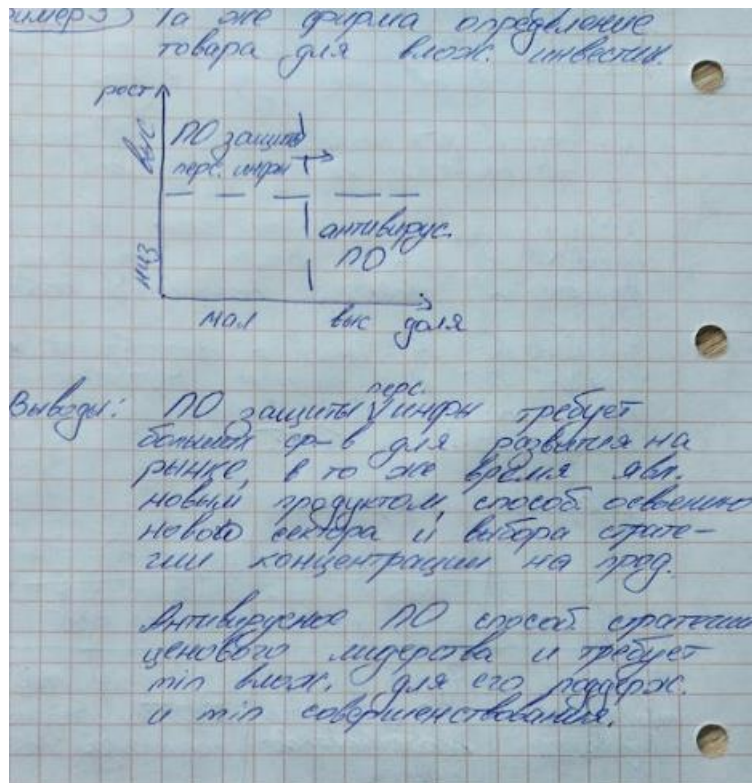 Пример 3) Та же фирма определение
товара для влож. инвестиц.
рост
выс
низ
ПО защиты
перс. инфы
антивирус.
ПО
мал выс доля
Выводы: ПО защиты перс. инфы требует
больших ср-в для развития на
рынке, в то же время явл.
новым продуктом, способ. освоению
нового сектора и выбора страте-
гии концентрации на прод.
Антивирусное ПО способ. стратегии
ценового лидерства и требует
min влож. для его поддерж.
и min совершенствования.